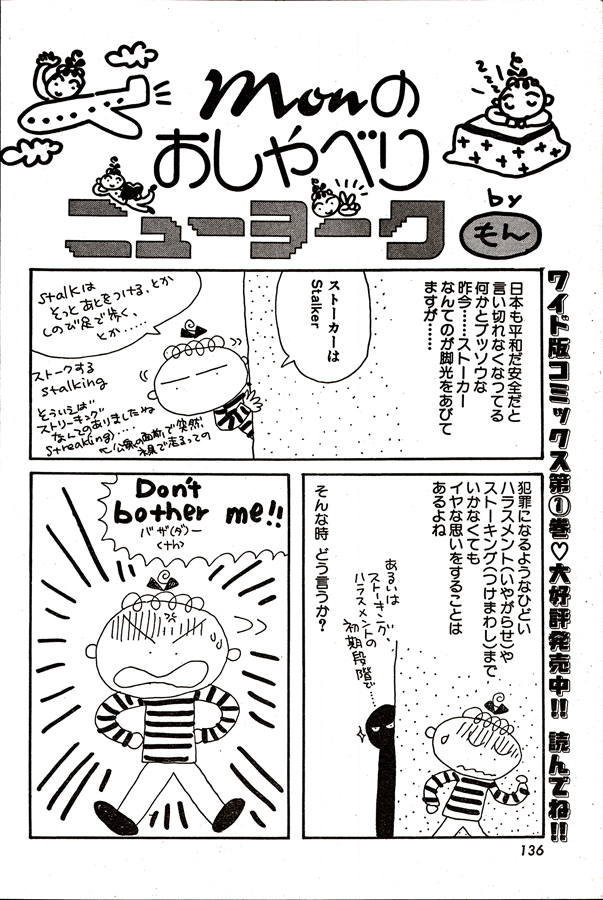 Monの
おしゃべり
ニューヨーク
by
もん
ワイド版コミックス第①巻♡大好評発売中!! 読んでね!!
日本も平和だ安全だと
言い切れなくなってる
何かとブッソウな
昨今……ストーカー
なんてのが脚光をあびて
ますが……
ストーカーは
Stalker
stalkは
そっとあとをつける、とか
しのび足で歩く、
とか……
ストークする
stalking
そういえば
ストリーキング
なんてのありましたね
streaking)……
公衆の面前で突然
裸で走るっての
犯罪になるようなひどい
ハラスメント(いやがらせ)や
ストーキング(つけまわし)まで
いかなくても
イヤな思いをすることは
あるよね
あるいは
ストーキング、
ハラスメントの
初期段階で…
そんな時 どう言うか?
Don't
bother me!!
バザ(ダ)ー
(th)
136